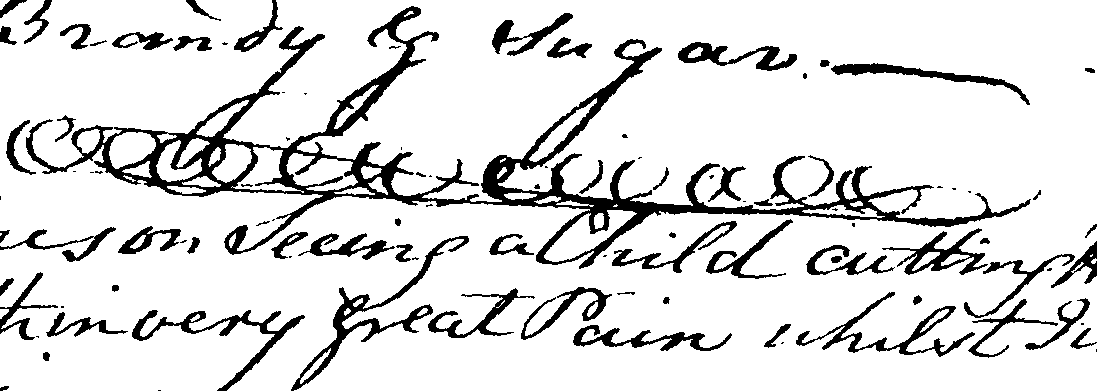 Brandy & Sugar.
on Seeing a Child cutting
in very great Pain whilst